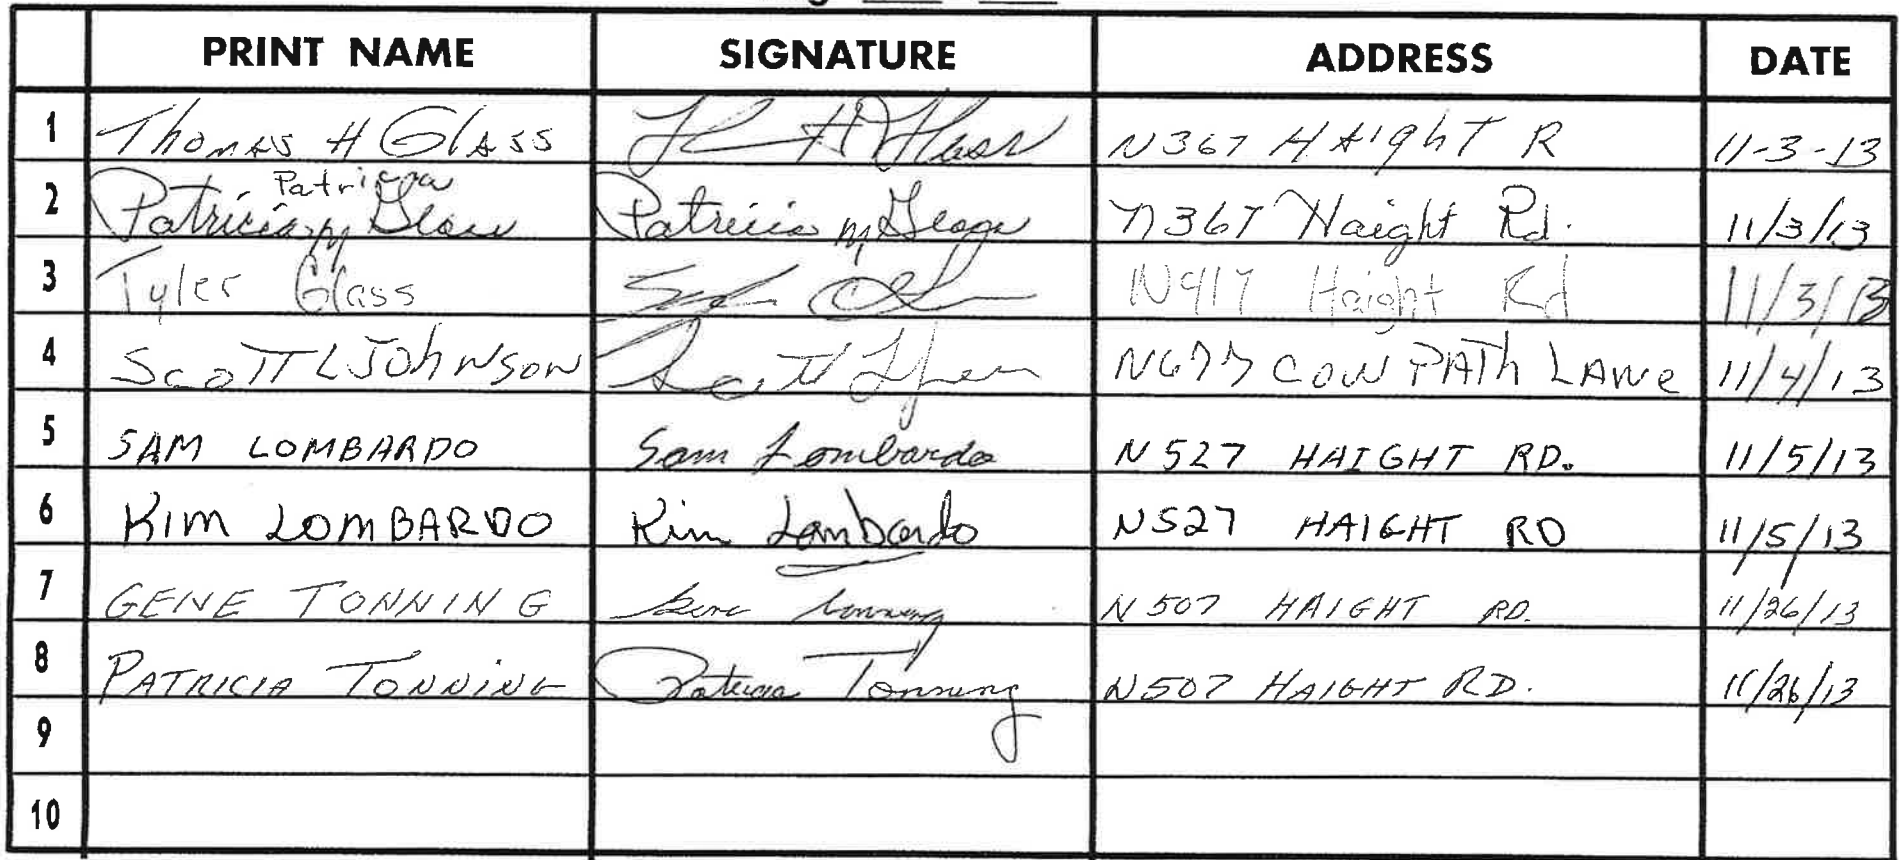 PRINT NAME SIGNATURE ADDRESS DATE
1 Thomas H Glass N367 HAighT R 11-3-13
Patricia
2 Patricia M Glass Patricia M Glass N367 Haight Rd. 11/3/13
3 Tyler Glass N417 Haight Rd 11/3/13
4 ScoTT L JOhNSON Scott COW PATh LANe 11/4/13
5 SAM LOMBARDO Sam Lombardo N527 HAIGHT RD. 11/5/13
6 KIM LOMBARDO Kim Lombardo N527 HAIGHT RD 11/5/13
7 GENE TONNING Gene Tonning N507 HAIGHT RD. 11/26/13
8 PATRICIA TONNING Patricia Tonning N507 HAIGHT RD. 11/26/13
9
10